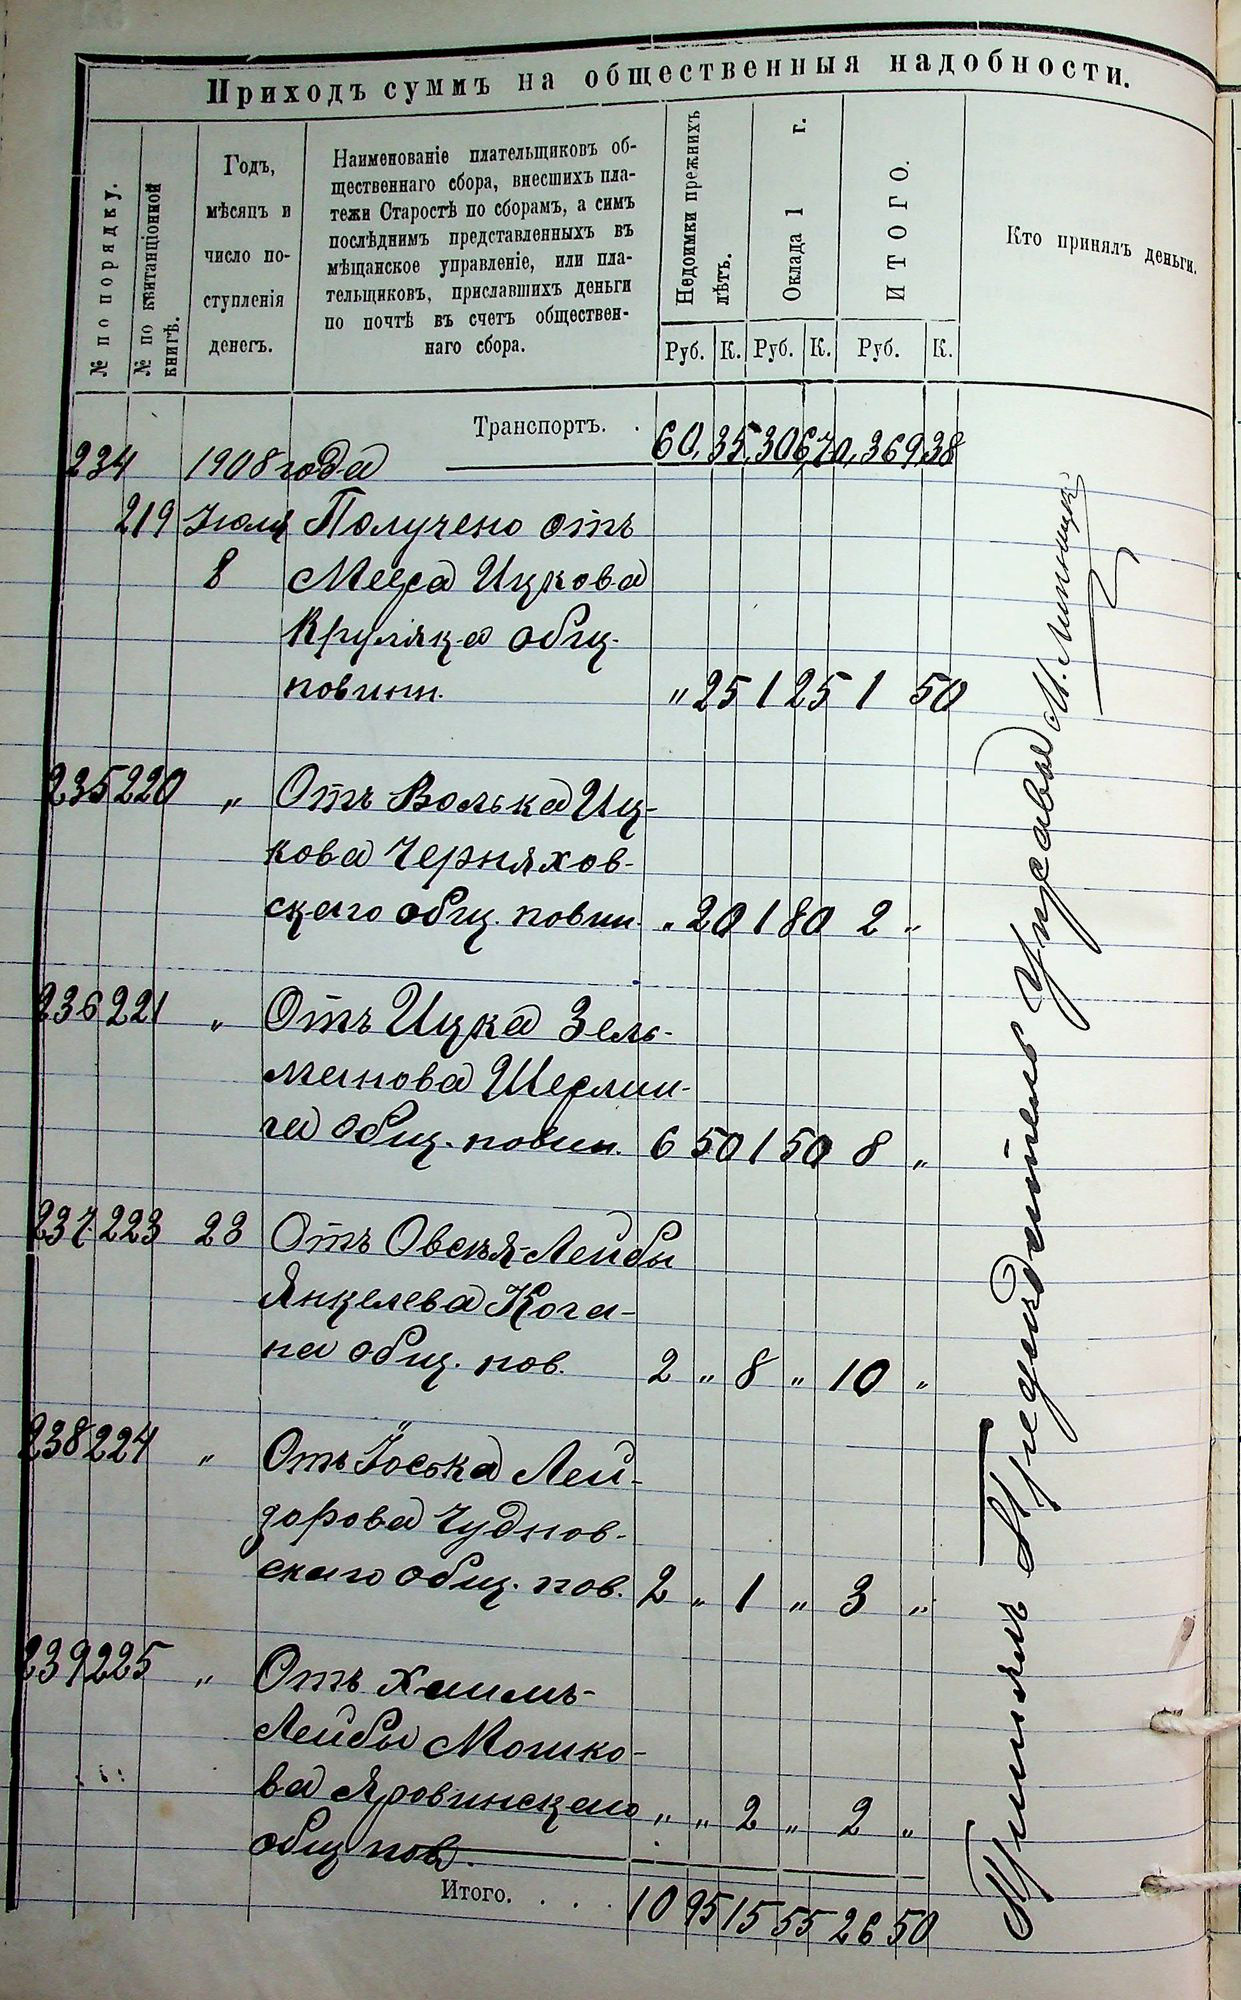 Приходъ суммъ на общественныя надобности.
№ по порядку.
№ по квитанціонной книгѣ.
Годъ,
мѣсяцъ и
число по-
ступленія
денегъ.
Наименованіе плательщиковъ об-
щественнаго сбора, внесшихъ пла-
тежи Старостѣ по сборамъ, а симъ
послѣднимъ представленныхъ въ
мѣщанское управленіе, или пла-
тельщиковъ, приславшихъ деньги
по почтѣ въ счетъ обществен-
наго сбора.
Недоимки прежнихъ
лѣтъ.
Оклада 1 г.
ИТОГО.
Кто принялъ деньги.
Руб. К. Руб. К. Руб. К.
Транспортъ. . 60, 35, 306, 70, 369, 38
234 1908 года
219 Іюля Получено отъ
8 Меера Ицкова
Круляка общ.
повинн. " 25 1 25 1 50
235 220 " Отъ Волька Иц-
кова Черняхов-
скаго общ. повин. " 20 1 80 2 "
236 221 " Отъ Ицка Зель-
манова Шерлин-
га общ. повин. 6 50 1 50 8 "
237 223 23 Отъ Овсѣя-Лейбы
Янкелева Кога-
на общ. пов. 2 " 8 " 10 "
238 224 " Отъ Іоська Лей-
зорова Чуднов-
скаго общ. пов. 2 " 1 " 3 "
239 225 " Отъ Хаимъ-
Лейбы Мошко-
ва Яровинскаго " " 2 " 2 "
общ пов.
Итого. . . . 10 95 15 55 26 50
Принялъ Предсѣдатель Управы М.